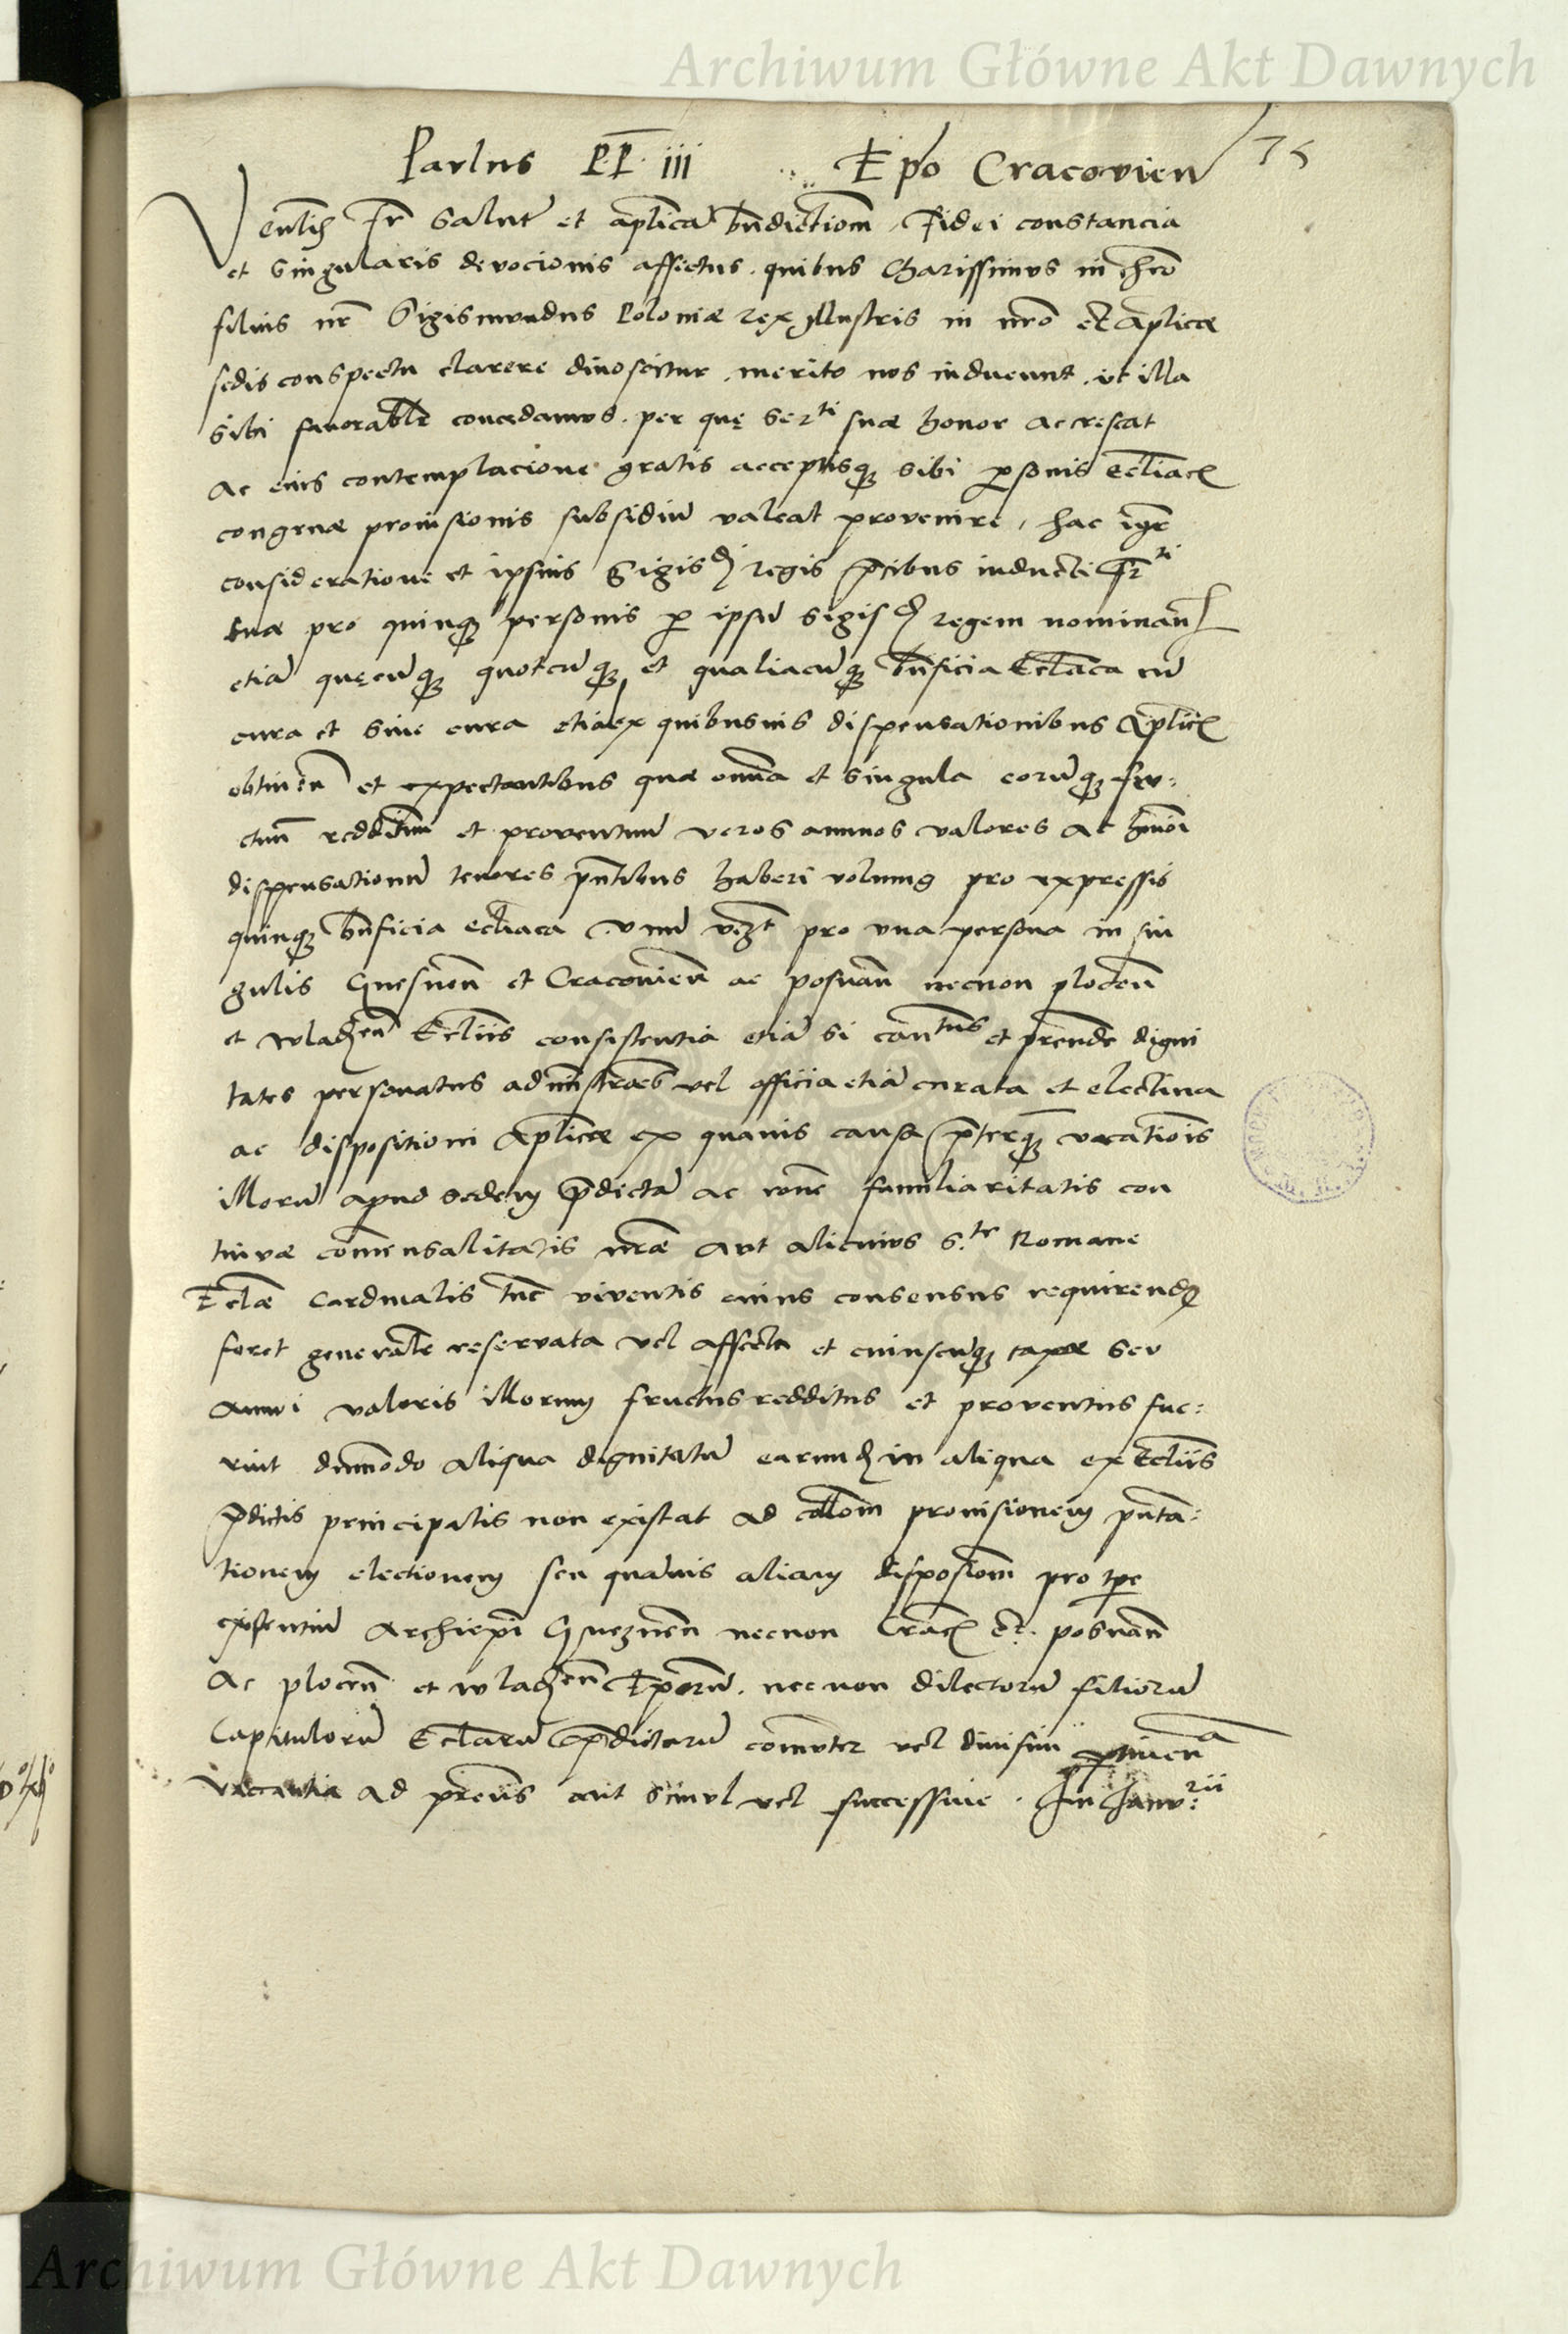 Archiwum Główne Akt Dawnych
75
Paulus P.P. iii Epo Cracovien
Venlis fr salute et aplica bndictiom, Fidei constancia
et singularis devocionis affectus. quibus charissimus in chro
filius nr Sigismundus Poloniæ rex illustris in nro et aplicæ
sedis conspectu clarere dinoscitur, merito nos inducunt, ut illa
sibi favorabilr concedamus. per quę Serti suæ honor accrescat
ac eius contemplacione gratis acceptisq3 sibi psonis eccliacis
congruæ provisionis subsidiu valeat provenire, hac igr
consideratione et ipsius Sigisdi regis pcibus inducti frti
tuæ pro quinq3 personis p ipsu Sigisd regem nominand
etia quęcuq3 quotcuq3 et qualiacuq3 bnficia Ecclaca cu
cura et sine cura etia ex quibusuis dispensationibus Aplicis
obtinen et expectantibus quæ omnia et singula eorumq3 fru:
ctuu reddituu et proventuu veros annuos valores ac hmoi
dispensationu tenores pntibus haberi volumus pro expressis
quinq3 bnficia eccliaca unu vizt pro una persona in sin
gulis Gnesnen et Cracovien ac posnan necnon plocen
et wladen Eccliis consistentia etia si cantus et prende digni
tates personatus administraes vel officia etia curata et electiva
ac dispositioni Aplicæ ex quavis causa pterq3 vacationis
illoru apud sedem pdicta ac rone familiaritatis con
tinuæ comensalitatis nræ aut alicuius S.te Romane
Eclæ Cardinalis tuc viventis cuius consensus requirendus
foret generalr reservata vel affecta et cuiuscuq3 taxæ seu
annui valoris illorum fructus redditus et proventus fue:
rint dummodo aliqua dignitatu earund in aliqua ex Eccliis
pdictis principalis non existat ad collom provisionem pnta:
tionem electionem seu quamuis aliam disposiom pro tpe
existentiu Archiepi Gneznen necnon Crac et posnan
Ac plocen et wladen Eporu. necnon dilectoru filioru
Capituloru Ecclaru pdictaru comuter vel divisim ptinena
vacantia ad prens aut simul vel successive. In Januarii
Archiwum Główne Akt Dawnych